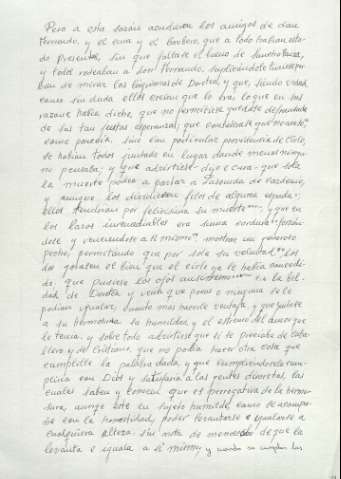 Pero a esta sazón acudieron los amigos de don
Fernando, y el cura y el barbero, que a todo habían esta-
do presentes, sin que faltase el bueno de Sancho Panza,
y todos rodeaban a don Fernando, suplicándole tuviese por
bien de mirar las lágrimas de Dorotea, y que, siendo verdad,
como sin duda ellos creían que lo era, lo que en sus
razones había dicho, que no permitiese quedase defraudada
de sus tan justas esperanzas; que considerase que no acaso,
como parecía, sino con particular providencia del Cielo,
se habían todos juntado en lugar donde menos ninguno
pensaba; y que advirtiese dijo el cura que sola
la muerte podía apartar a Luscinda de Cardenio,
y aunque los dividiesen filos de alguna espada,
ellos tendrían por felicísima su muerte, y que en
los lazos irremediables era suma cordura, forzán-
dose y venciéndose a sí mismo, mostrar un generoso
pecho, permitiendo que por sola su voluntad los
dos gozasen el bien que el cielo ya le había concedi-
do; que pusiese los ojos ansimesmo en la bel-
dad de Dorotea y vería que pocas o ninguna se le
podían igualar, cuanto más hacerle ventaja, y que juntase
a su hermosura su humildad y el extremo del amor que
le tenía, y sobre todo advirtiese que si se preciaba de caba-
llero y de cristiano, que no podía hacer otra cosa que
cumplille la palabra dada, y que cumpliéndosela cum-
pliría con Dios y satisfaría a las gentes discretas, las
cuales saben y conocen que es prerrogativa de la hermo-
sura, aunque esté en sujeto humilde, como se acompa-
ñe con la honestidad, poder levantarse e igualarse a
cualquiera alteza, sin nota de menoscabo de que la
levanta e iguala a sí mismo; y cuando se cumplen las